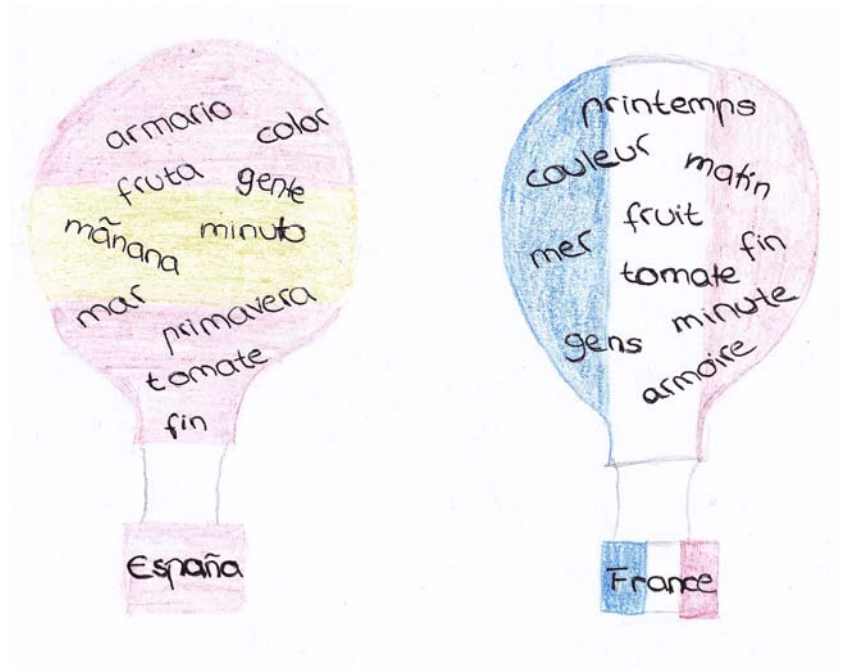 armario
color
fruta
gente
mãnana
minuto
mar
primavera
tomate
fin
España
printemps
couleur
matin
fruit
mer
fin
tomate
minute
gens
armoire
France